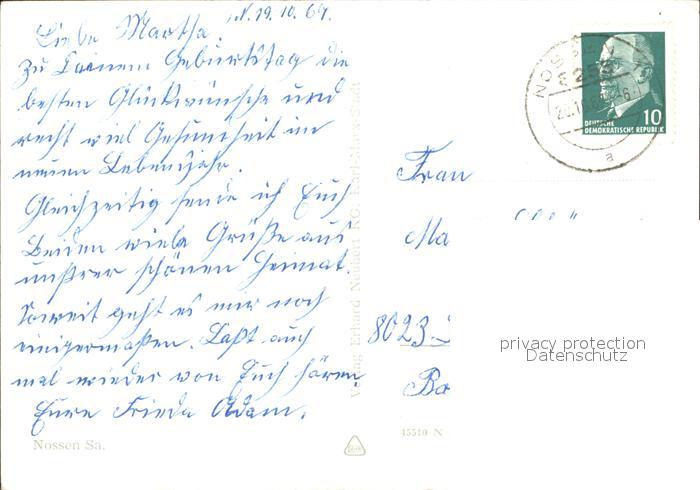 N. 19.10.69.
Liebe Martha.
Zu Deinem Geburtstag die
besten Glückwünsche und
recht viel Gesundheit im
neuen Lebensjahr.
Gleichzeitig sende ich Euch
Beiden viele Grüße aus
unsrer schönen Heimat.
Soweit geht es mir noch
einigermaßen. Laßt auch
mal wieder von Euch hören
Eure Frieda Adam.
Nossen Sa.
Verlag Erhard Neubert KG
45510 N
NOSSEN
8255
a
10
DEUTSCHE
DEMOKRATISCHE REPUBLIK
Frau
Ma
8023
privacy protection
Datenschutz